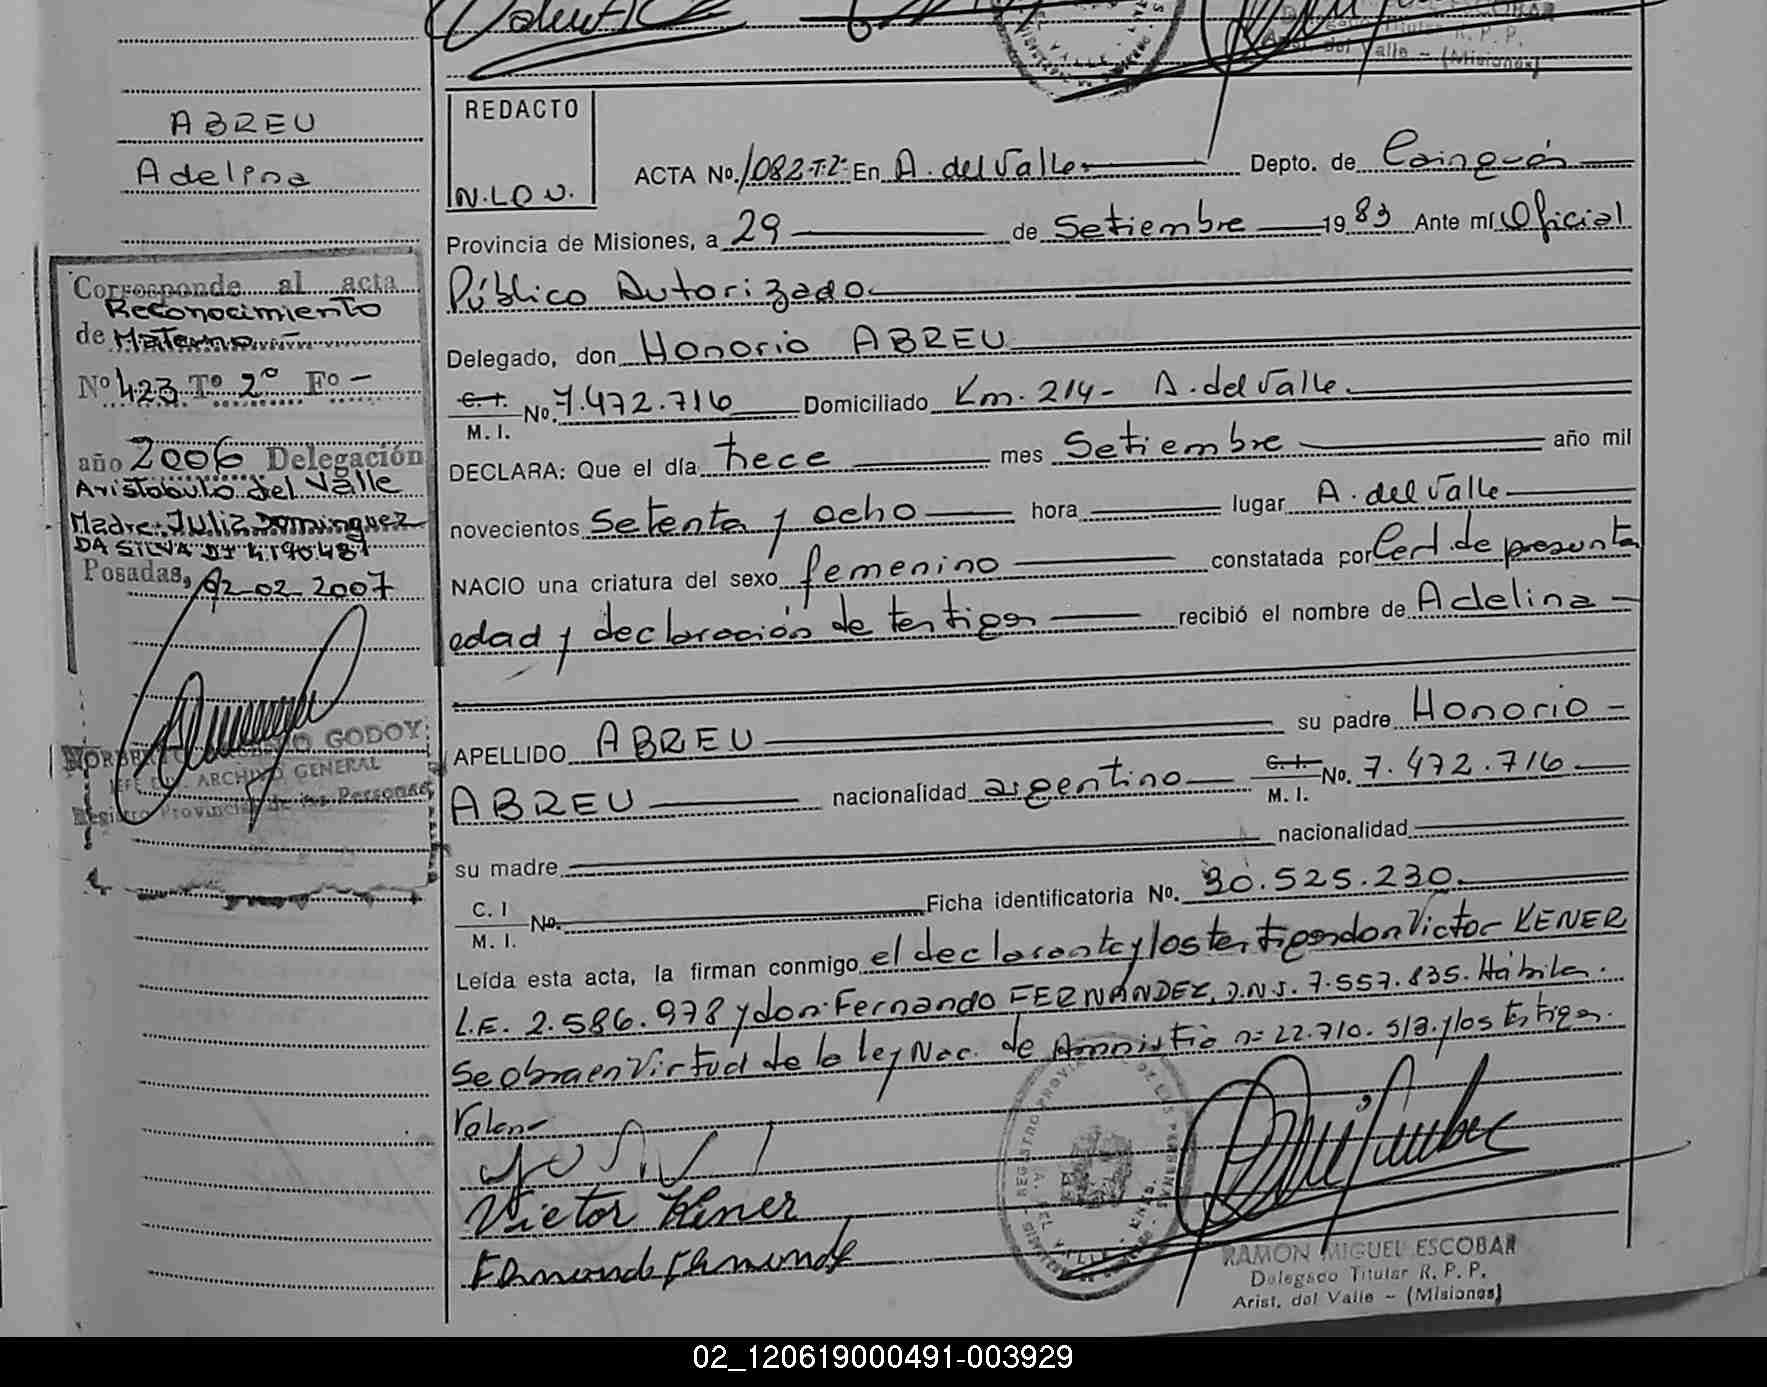 ESCOBAR
Delegado Titular R. P. P.
Arist. del Valle - (Misiones)
ABREU
Adelina
Corresponde al acta
Reconocimiento
de Materno -
Nº 423 Tº 2º Fº -
año 2006 Delegación
Aristobulo del Valle
Madre: Julia Dominguez
DA SILVA DI 4.190.487
Posadas, 02-02-2007
GODOY
ARCHIVO GENERAL
Registro Provincial de las Personas
REDACTO
N.L.O.V.
ACTA No. 1082-T:2- En A. del Valle Depto. de Cainguás
Provincia de Misiones, a 29 de Setiembre 1983 Ante mí Oficial
Público Autorizado
Delegado, don Honorio ABREU
C. I. M. I. No. 7.472.716 Domiciliado Km. 214- A. del Valle
DECLARA: Que el día trece mes Setiembre año mil
novecientos Setenta y ocho hora lugar A. del Valle
NACIO una criatura del sexo femenino constatada por Cert. de presunta
edad y declaración de testigos recibió el nombre de Adelina
APELLIDO ABREU su padre Honorio -
ABREU nacionalidad argentino C. I. M. I. No. 7.472.716
su madre nacionalidad
C. I M. I. No. Ficha identificatoria No. 30.525.230
Leída esta acta, la firman conmigo el declarante y los testigos don Victor KENER
L.E. 2.586.978 y don Fernando FERNANDEZ, D.N.I. 7.557.835. Hábiles.
Se obra en Virtud de la ley Nac. de Amnistia nº 22.710. s/a. y los testigos.
Valen-
Victor Kener
RAMON MIGUEL ESCOBAR
Delegado Titular R. P. P.
Arist. del Valle - (Misiones)
02_120619000491-003929